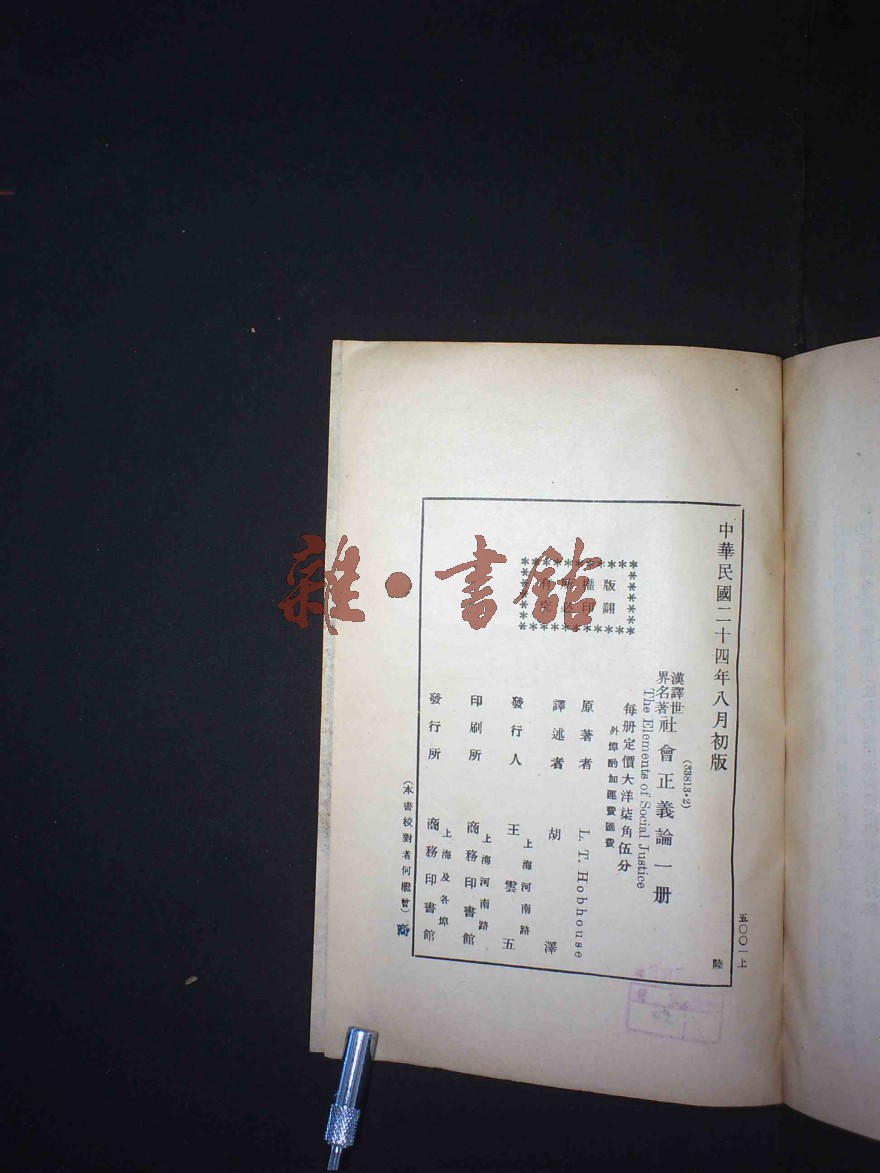 中華民國二十四年八月初版
五〇〇一上
陸
(33813·2)
漢譯世
界名著
社會正義論一册
The Elements of Social Justice
每册定價大洋柒角伍分
外埠酌加運費匯費
版權所有
翻印必究
原著者 L. T. Hobhouse
譯述者 胡澤
發行人 王雲五
上海河南路
印刷所 商務印書館
上海河南路
發行所 商務印書館
上海及各埠
(本書校對者何
曾)
雜·書館